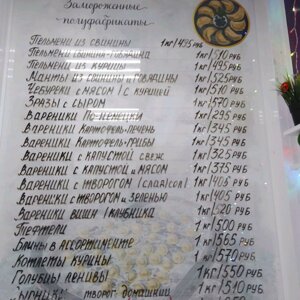 Замороженные
полуфабрикаты
Пельмени из свинины 1кг/495 руб
Пельмени свинина-говядина 1кг/510 руб
Пельмени из курицы 1кг/495 руб
Манты из свинины и говядины 1кг/525 руб
Чебуреки с мясом / с курицей 1кг/510 руб
Зразы с сыром 1кг/570 руб
Вареники по-немецки 1кг/295 руб
Вареники картофель-печень 1кг/345 руб
Вареники картофель-грибы 1кг/345 руб
Вареники с капустой свеж 1кг/325 руб
Вареники с капустой и мясом 1кг/375 руб
Вареники с творогом (слад/сол) 1кг/405 руб
Вареники с творогом и зеленью 1кг/405 руб
Вареники вишн / клубника 1кг/520 руб
Тефтели 1кг/500 руб
Блины в ассортименте 1кг/565 руб
Котлеты курины 1кг/570 руб
Голубцы ленивы 1кг/550 руб
Сырники творог домашний 1кг/510 руб